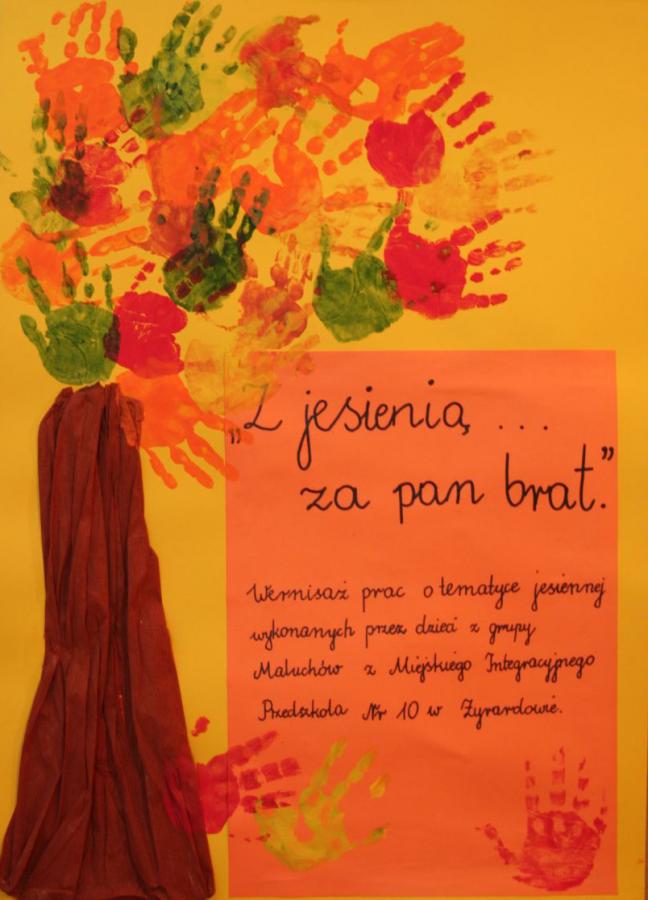 „Z jesienią ...
za pan brat.”
Wernisaż prac o tematyce jesiennej
wykonanych przez dzieci z grupy
Maluchów z Miejskiego Integracyjnego
Przedszkola Nr 10 w Żyrardowie.